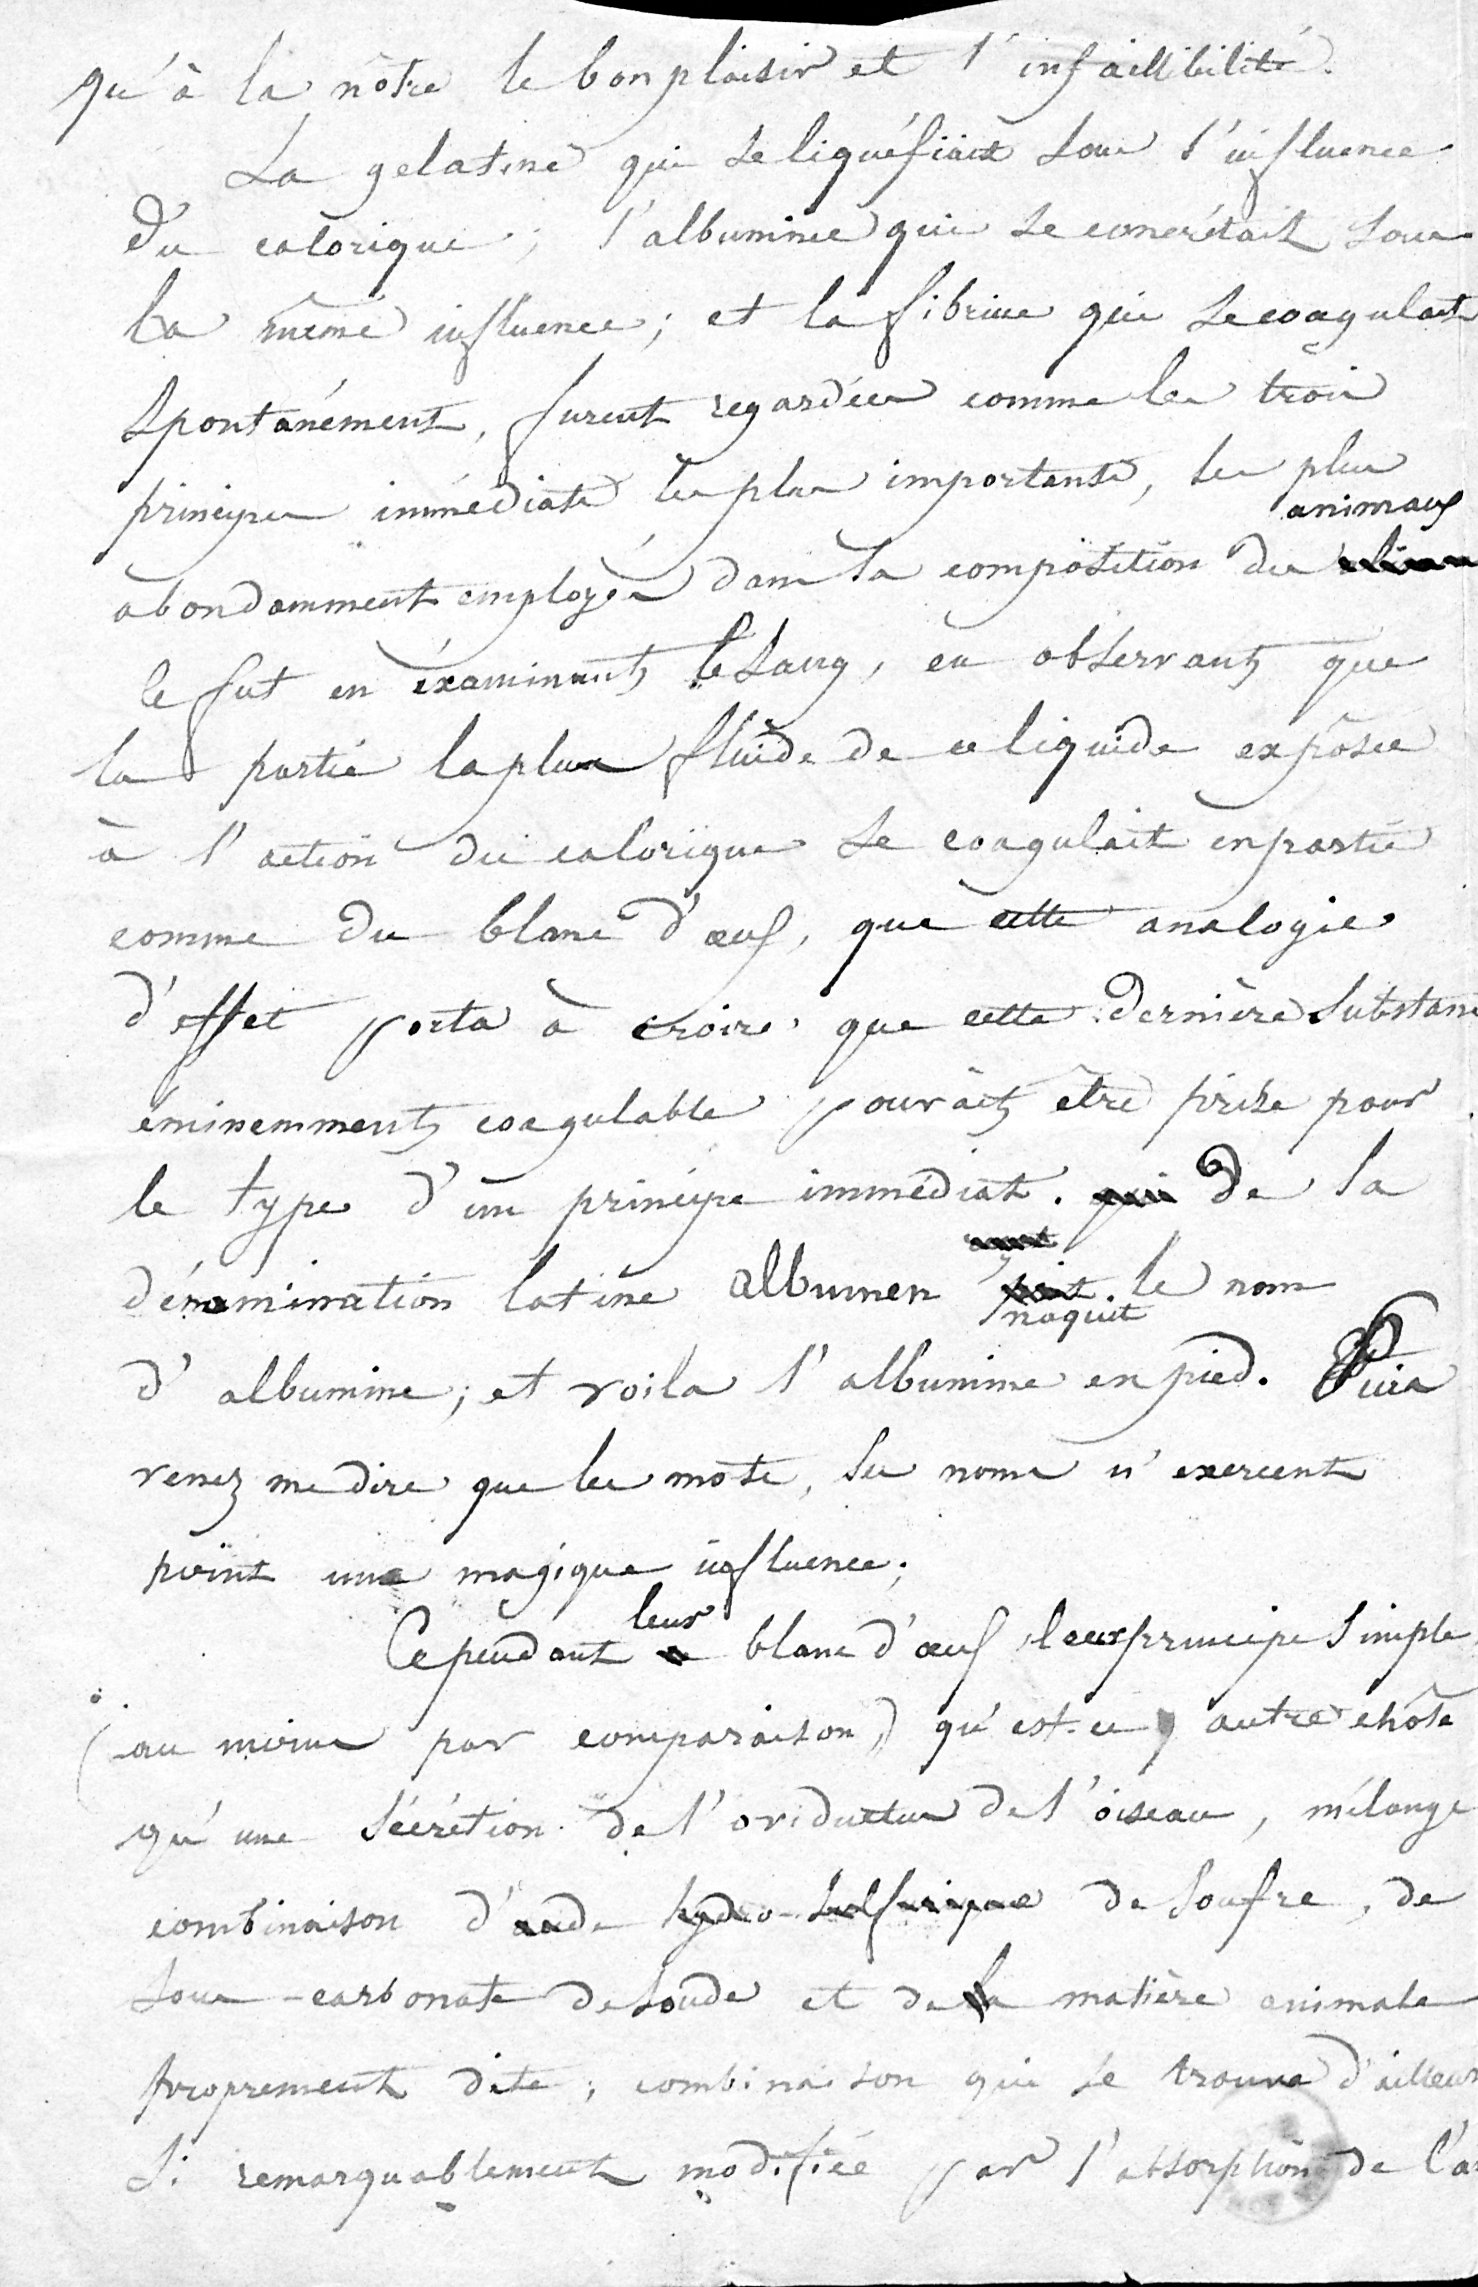 qu'à la nôtre le bon plaisir et l'infaillibilité.
La gelatine qui se liquéfiait sous l'influence
du calorique ; l'albumine qui se concrétait sous
la même influence ; et la fibrine qui se coagulait
spontanément, furent regardées comme les trois
principes immédiats les plus importants, les plus
animaux
abondamment employés dans la composition des
ce fut en éxaminant le sang, en observant que
la partie la plus fluide de ce liquide exposée
à l'action du calorique se coagulait en partie
comme du blanc d'œuf, que cette analogie
d'effet porta à croire que cette dernière substan
éminemment coagulable pouvait être prise pour
le type d'un principe immédiat. qui De la
dénomination latine albumen le nom
naquit
d'albumine ; et voila l'albumine en pied. Puis
venez me dire que les mots, les noms n'exercent
point une magique influence ;
leur
Cependant blanc d'œuf, leur principe simple
(au moins par comparaison) qu'est-ce autre chôse
qu'une sécrétion de l'oviductus de l'oiseau, mélange
combinaison d'acide hydro-sulfurique de soufre, de
sous-carbonate de soude et de la matière animale
proprement dite ; combinaison qui se trouve d'ailleurs
si remarquablement modifiée par l'absorption de l'a